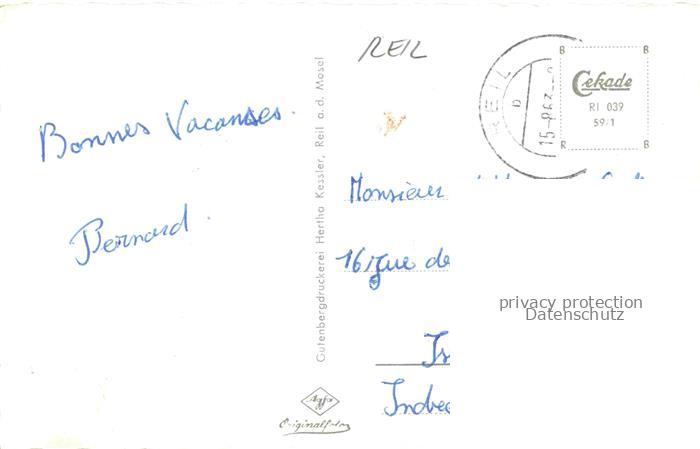 REIL
REIL
15-8.63
B B
Cekade
RI 039
59/1
R B
Bonnes Vacances.
Bernard.
Gutenbergdruckerei Hertha Kessler, Reil a.d. Mosel
Monsieur
16 rue de
Is
Indre
privacy protection
Datenschutz
Agfa
Originalfoto